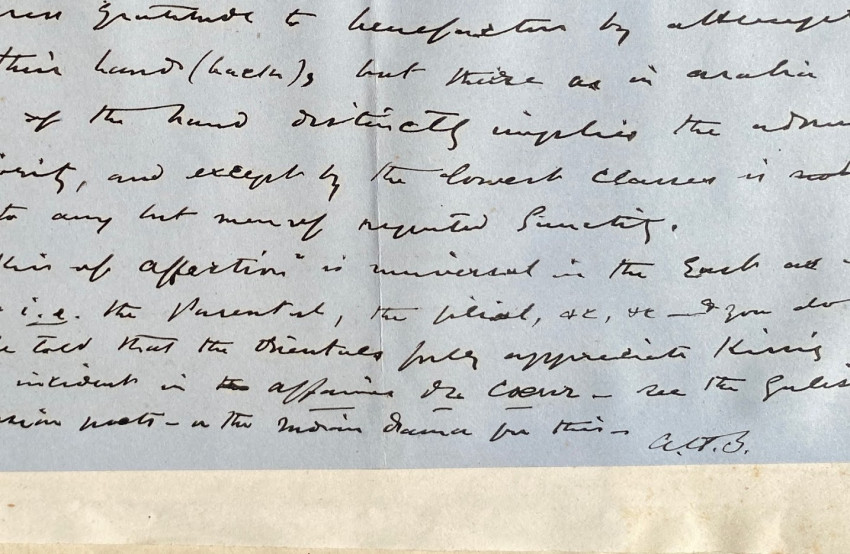 gratitude to benefactors by
their hand (backs), but there as in arabia
of the hand distinctly implies the
and except by the lowest classes is not
to any but men of reputed Sanctity.
of affection" is universal in the East
i.e. the Parental, the filial, &c, &c — & you do
told that the Orientals fully appreciate Kissing
incident in affaires de Coeur — see the
poets — or the Indian drama for this —